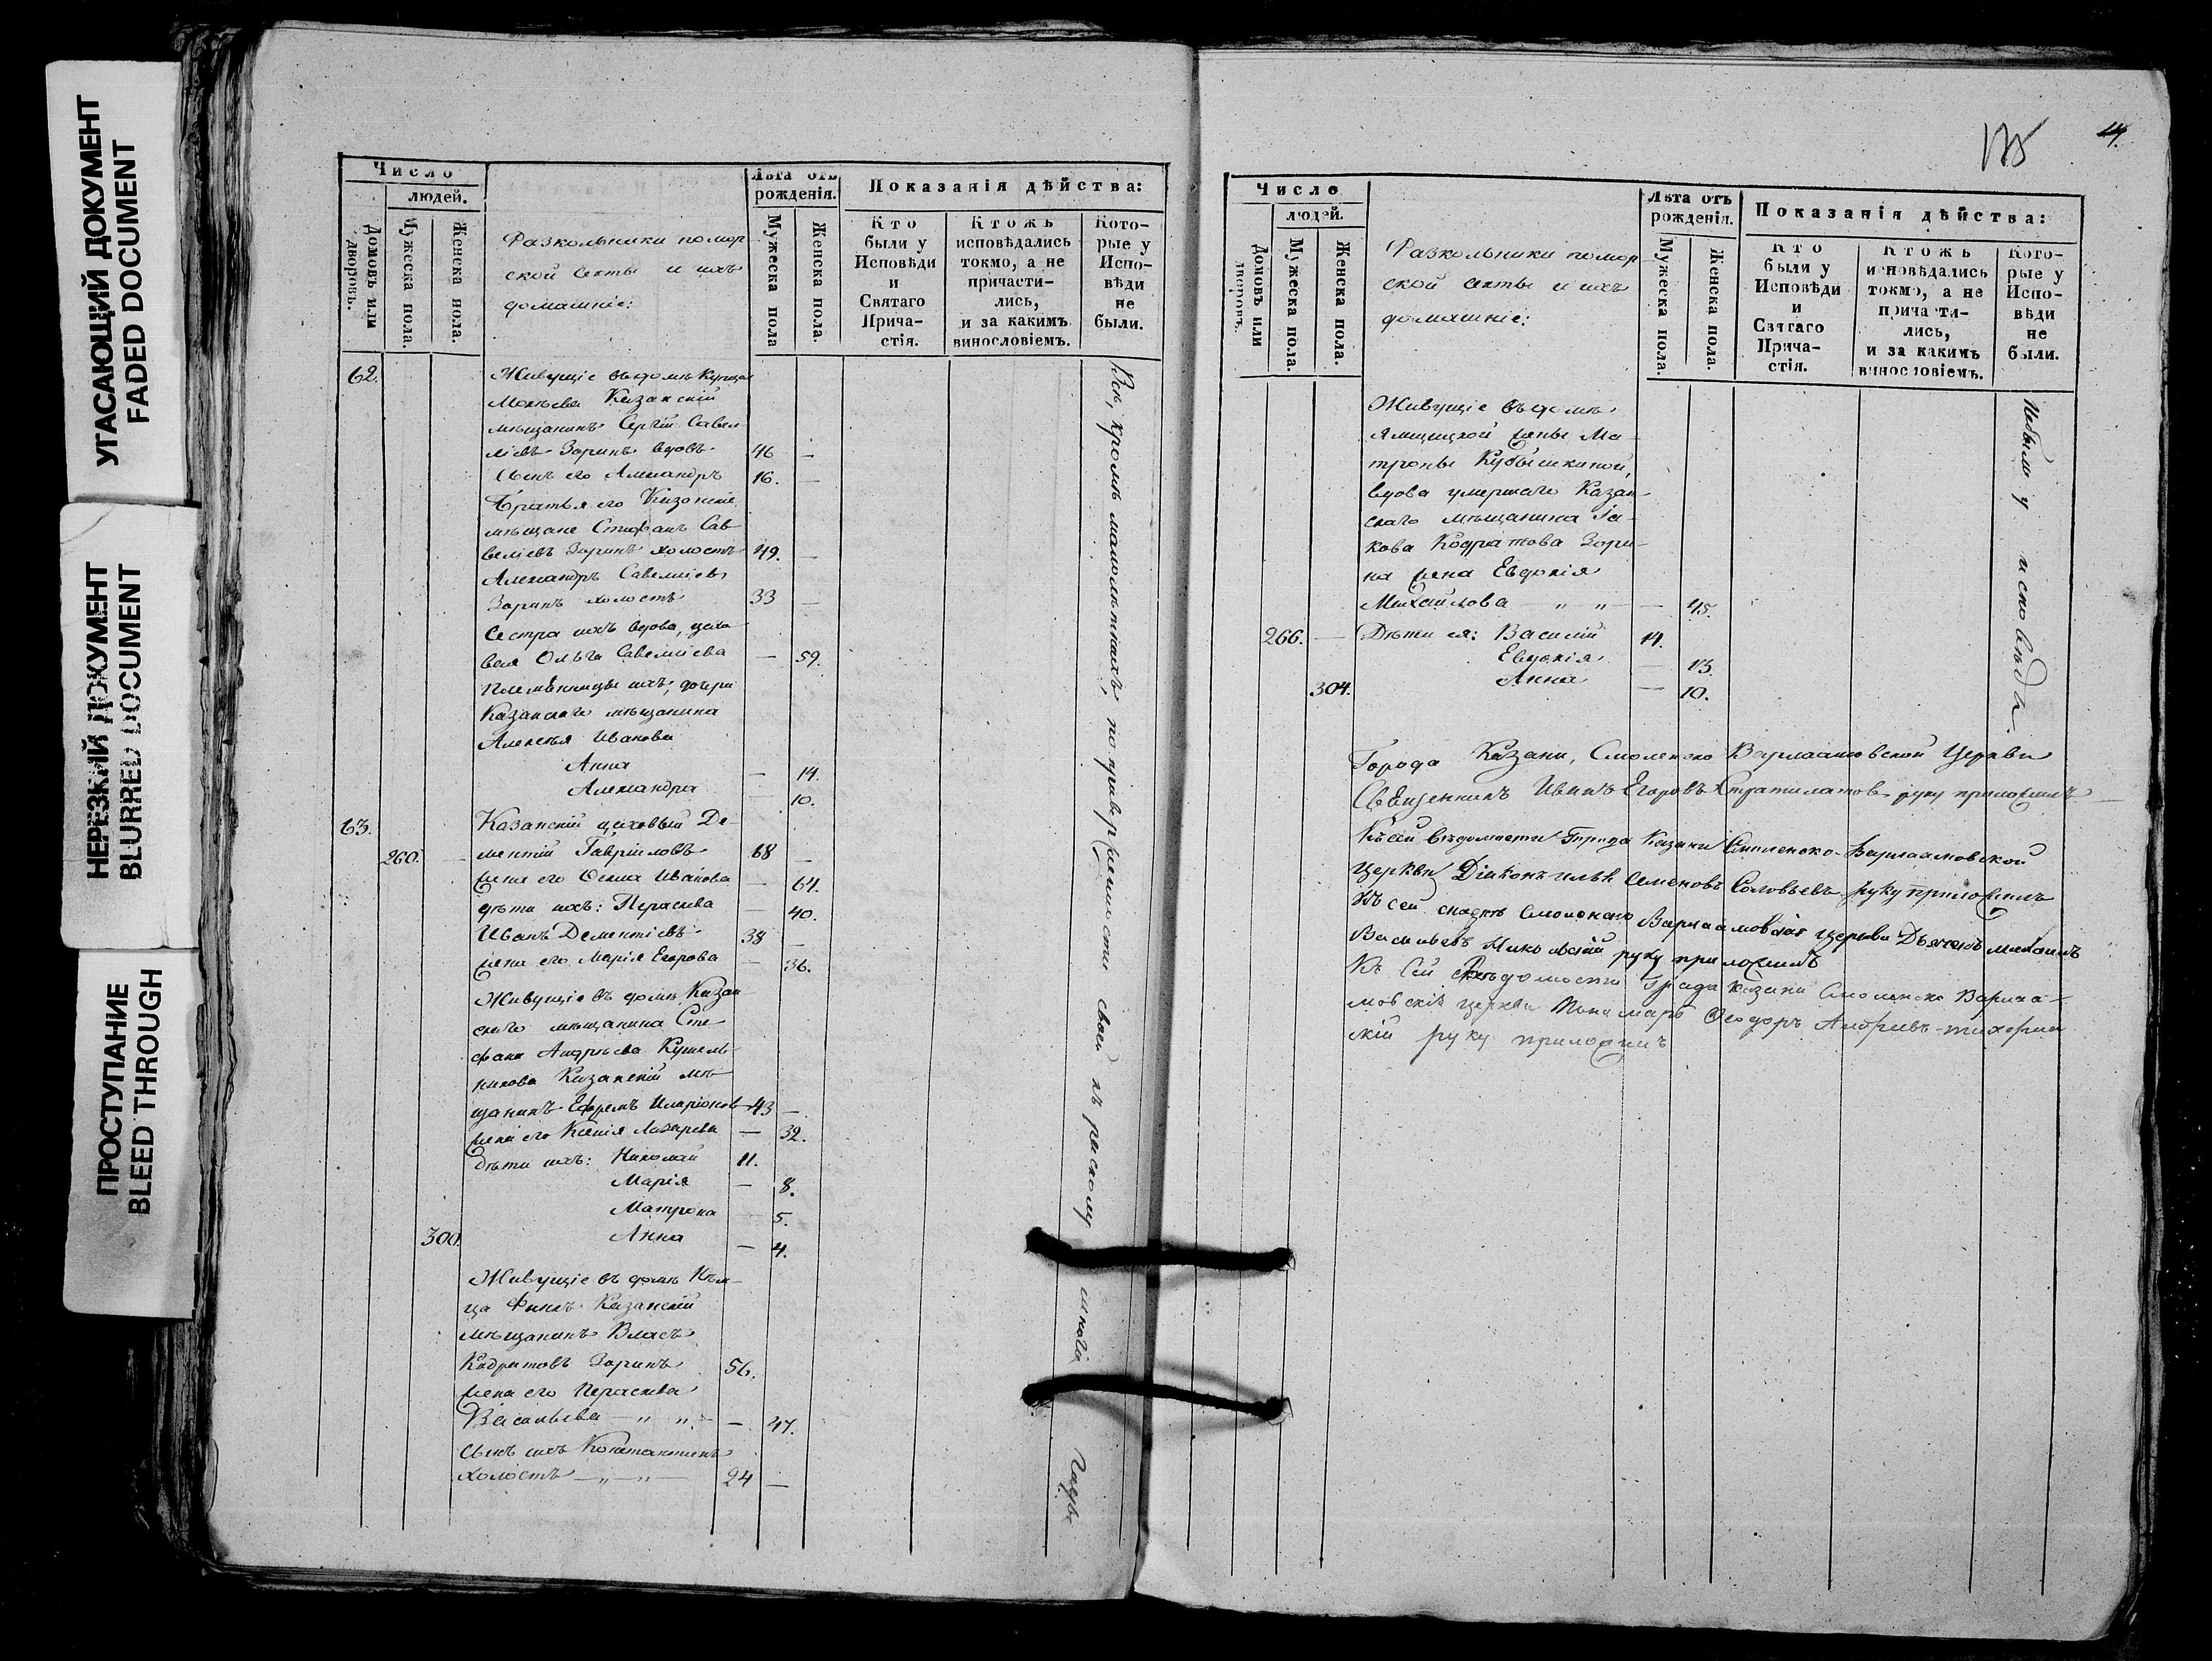 УГАСАЮЩИЙ ДОКУМЕНТ
FADED DOCUMENT
НЕРЕЗКИЙ ДОКУМЕНТ
BLURRED DOCUMENT
ПРОСТУПАНИЕ
BLEED THROUGH
Число
людей.
Домовъ или дворовъ.
Мужеска пола.
Женска пола.
Разкольники помор
ской секты и ихъ
домашніе:
Лѣта отъ рожденія.
Мужеска пола
Женска пола.
Показанія дѣйства:
Кто были у Исповѣди и Святаго Прича- стія.
Ктожъ исповѣдались токмо, а не причасти- лись, и за какимъ винословіемъ.
Кото- рые у Испо- вѣди не были.
62. Живущіе въ домѣ Купца
Казанскій
мѣщанинъ Сергій Савел
ліевъ Заринъ вдовъ 46 —
Сынъ его Александръ 16. —
Братья его Казанскіе
мѣщане Стефанъ Сав
веліевъ Заринъ холостъ 49. —
Александръ Савелліевъ
Заринъ холостъ 33 —
Сестра ихъ вдова, цехо
вая Ольга Савелліева — 59.
Племѣнницы ихъ, дочери
Казанскаго мѣщанина
Алексѣя Иванова
Анна — 14.
Александра — 10.
63. Казанскій цеховый Де-
260. — ментій Гавріиловъ 68 —
жена его Ивановa — 64.
дѣти ихъ: Параскева — 40.
Иванъ Дементіевъ 38 —
жена его Марія Егорова — 36.
Живущіе въ домѣ Казан
скаго мѣщанина Сте
фана Андреева
Казанскій мѣ
щанинъ Ефремъ Иларіонов 43 —
жена его Ксенія Лазарева — 32.
Дѣти ихъ: Николай 11.
Марія — 8.
Матрона — 5.
300. Анна — 4.
Живущіе въ домѣ Нѣм
ца Казанскій
мѣщанинъ Власъ
Кодратовъ Заринъ 56.
жена его Параскева
Васильева — „ „ — — 47.
Сынъ ихъ Константинъ
холостъ — „ — „ — 24 —
Всѣ, кромѣ малолѣтнихъ, по приверженности своей къ расколу
годы
175
Число
людей.
Домовъ или дворовъ.
Мужеска пола.
Женска пола.
Разкольники помор
ской секты и ихъ
домашніе:
Лѣта отъ рожденія.
Мужеска пола.
Женска пола.
Показанія дѣйства:
Кто были у Исповѣди и Святаго Прича- стія.
Ктожъ исповѣдались токмо, а не прича ти- лись, и за какимъ винословіемъ.
Кото- рые у Испо- вѣди не были.
Живущіе въ домѣ
Ямщицкой жены Ма
троны Кубышкиной,
вдова умершаго Казан
скаго мѣщанина Іа-
кова Кодратова Зари-
на жена Евдокія
Михайлова — „ „ — — 45.
266. — Дѣти ея: Василій 14.
Евдокія — 13.
304. Анна — 10.
Небыли у исповѣди.
Города Казани, Смоленско Варлаамовской Церкви
Священникъ Иванъ Егоровъ Стратилатовъ руку приложилъ
Къ сей вѣдомости Города Казани Смоленско-Варлаамовской
Церкви Діаконъ Семеновъ Соловьевъ руку приложилъ
Къ сей Смоленско Варлаамовской церкви Дьячекъ Михаилъ
Васильевъ Никольскій руку приложилъ
Къ сей вѣдомости Града Казани Смоленско Варлаа-
мовскія церкви Пономарь Ѳеодоръ
скій руку приложилъ